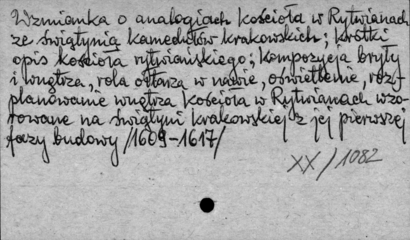 Wzmianka o analogiach kościoła w Rytwianach
ze świątynią kamedułów krakowskich; krótki
opis kościoła rytwiańskiego; kompozycja bryły
i wnętrza, rola ołtarza w nawie, oświetlenie, roz-
planowanie wnętrza kościoła w Rytwianach wzo-
rowane na świątyni krakowskiej z jej pierwszej
fazy budowy /1609-1617/
XX/1082